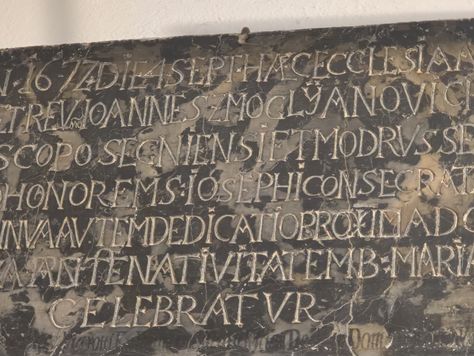 1674 DIE 4 SEPT HÆC ECCLESIA
REV: IOANNE SZMOGLYANOVIC
SCOPO SEGNIENSI ET MODRVS SE
HONOREM S: IOSEPHI CONSECRAT
NNVA AVTEM DEDICATIO
ANTE NATIVITATEM B: MARIA
CELEBRATVR